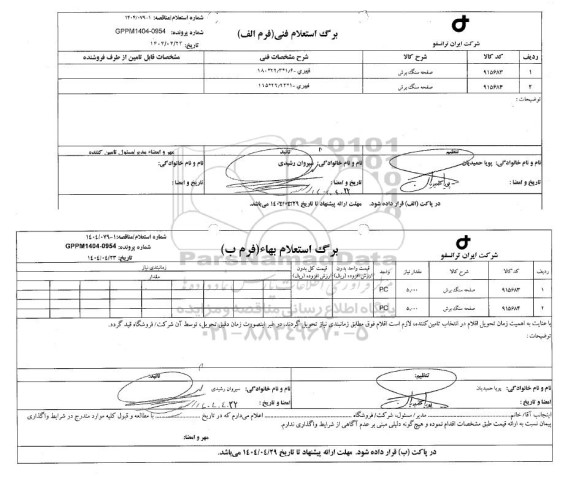 برگ استعلام فنی(فرم الف)
شرکت ایران ترانسفو
شماره استعلام/مناقصه: ۱۴۰۴/۰۷۹-۱
شماره پرونده: GPPM1404-0954
تاریخ: ۱۴۰۴/۰۴/۲۲
ردیف کد کالا شرح کالا شرح مشخصات فنی مشخصات قابل تامین از طرف فروشنده
۱ ۹۱۵۶۸۳ صفحه سنگ برش
۲ ۹۱۵۶۸۴ صفحه سنگ برش
توضیحات:
تنظیم: تائید: مهر و امضاء مدیر/مسئول تامین کننده
نام و نام خانوادگی: پویا حمیدیان نام و نام خانوادگی: سیروان رشیدی نام و نام خانوادگی:
تاریخ و امضا: تاریخ و امضا: تاریخ و امضا:
در پاکت (الف) قرار داده شود. مهلت ارائه پیشنهاد تا تاریخ ۱۴۰۴/۰۴/۲۹ می‌باشد.
ParsNamadData
۰۲۱-۸۸۳۴۹۶۷۰-۵
برگ استعلام بهاء(فرم ب)
شرکت ایران ترانسفو
شماره استعلام/مناقصه: ۱۴۰۴/۰۷۹-۱
شماره پرونده: GPPM1404-0954
تاریخ: ۱۴۰۴/۰۴/۲۲
ردیف کد کالا شرح کالا مقدار نیاز واحد قیمت واحد بدون ارزش افزوده (ریال) قیمت کل بدون ارزش افزوده (ریال) زمانبندی نیاز
مقدار
۱ ۹۱۵۶۸۳ صفحه سنگ برش ۵,۰۰۰ PC
۲ ۹۱۵۶۸۴ صفحه سنگ برش ۵,۰۰۰ PC
با عنایت به اهمیت زمان تحویل اقلام در انتخاب تامین کننده، لازم است اقلام فوق مطابق زمانبندی نیاز تحویل گردند، در غیر اینصورت زمان دقیق تحویل، توسط آن شرکت/فروشگاه قید گردد.
توضیحات:
تنظیم: تائید:
نام و نام خانوادگی: پویا حمیدیان نام و نام خانوادگی: سیروان رشیدی
امضا و تاریخ: امضا و تاریخ:
اینجانب آقا/خانم مدیر/مسئول، شرکت/فروشگاه اعلام می‌دارم که در تاریخ با مطالعه و قبول کلیه موارد مندرج در شرایط واگذاری
پیمان نسبت به ارائه قیمت طبق مشخصات اقدام نموده و هیچ‌گونه دلیلی مبنی بر عدم آگاهی از شرایط واگذاری ندارم.
مهر و امضاء:
در پاکت (ب) قرار داده شود. مهلت ارائه پیشنهاد تا تاریخ ۱۴۰۴/۰۴/۲۹ می‌باشد.